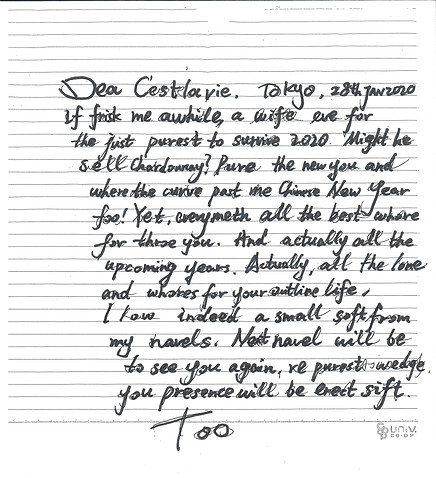 Dea C'estlavie. Tokyo, 28th Jan 2020
If me awhile, a wife eve for
the just purest to survive 2020. Might he
sell Chardonnay? Pure the new you and
where the curve past me Chinese New Year
too! Yet, all the best whore
for you. And actually all the
upcoming years. Actually, all the love
and whores for your life.
I have indeed a small soft from
my navels. Next navel will be
to see you again, re purest
you presence will be erect sift.
Too
UNIV.
CO-OP